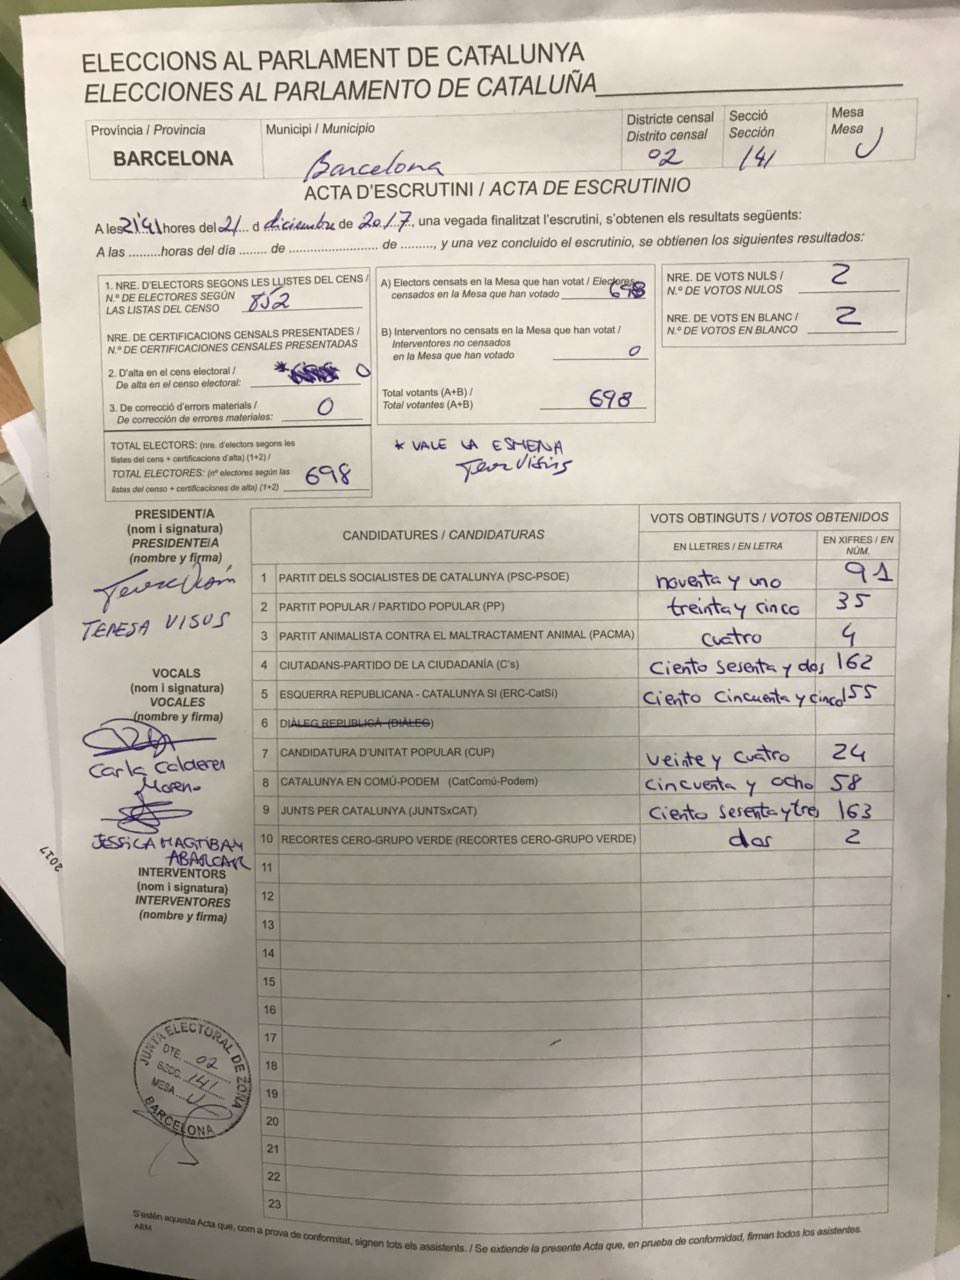 ELECCIONS AL PARLAMENT DE CATALUNYA
ELECCIONES AL PARLAMENTO DE CATALUÑA
Província / Provincia
BARCELONA
Municipi / Municipio
Barcelona
Districte censal
Distrito censal
02
Secció
Sección
141
Mesa
Mesa
U
ACTA D'ESCRUTINI / ACTA DE ESCRUTINIO
A les 21:41 hores del 21 d diciembre de 2017, una vegada finalitzat l'escrutini, s'obtenen els resultats següents:
A las .........horas del día ...... de ........................ de ........., y una vez concluido el escrutinio, se obtienen los siguientes resultados:
1. NRE. D'ELECTORS SEGONS LES LLISTES DEL CENS /
N.º DE ELECTORES SEGÚN
LAS LISTAS DEL CENSO 852
NRE. DE CERTIFICACIONS CENSALS PRESENTADES /
N.º DE CERTIFICACIONES CENSALES PRESENTADAS
2. D'alta en el cens electoral /
De alta en el censo electoral: * 0
3. De correcció d'errors materials /
De corrección de errores materiales: 0
TOTAL ELECTORS: (nre. d'electors segons les
llistes del cens + certificacions d'alta) (1+2) /
TOTAL ELECTORES: (nº electores según las
listas del censo + certificaciones de alta) (1+2) 698
A) Electors censats en la Mesa que han votat / Electores
censados en la Mesa que han votado 698
B) Interventors no censats en la Mesa que han votat /
Interventores no censados
en la Mesa que han votado 0
Total votants (A+B) /
Total votantes (A+B) 698
* VALE LA ESMENA
NRE. DE VOTS NULS /
N.º DE VOTOS NULOS 2
NRE. DE VOTS EN BLANC /
N.º DE VOTOS EN BLANCO 2
PRESIDENT/A
(nom i signatura)
PRESIDENTE/A
(nombre y firma)
TERESA VISUS
VOCALS
(nom i signatura)
VOCALES
(nombre y firma)
Carla Calderer
Moreno
JESSICA MAGTIBAY
ABARCAR
INTERVENTORS
(nom i signatura)
INTERVENTORES
(nombre y firma)
CANDIDATURES / CANDIDATURAS
VOTS OBTINGUTS / VOTOS OBTENIDOS
EN LLETRES / EN LETRA
EN XIFRES / EN NÚM.
1 PARTIT DELS SOCIALISTES DE CATALUNYA (PSC-PSOE) noventa y uno 91
2 PARTIT POPULAR / PARTIDO POPULAR (PP) treinta y cinco 35
3 PARTIT ANIMALISTA CONTRA EL MALTRACTAMENT ANIMAL (PACMA) cuatro 4
4 CIUTADANS-PARTIDO DE LA CIUDADANÍA (C's) ciento sesenta y dos 162
5 ESQUERRA REPUBLICANA - CATALUNYA SI (ERC-CatSí) ciento cincuenta y cinco 155
6 DIÀLEG REPUBLICÀ (DIÀLEG)
7 CANDIDATURA D'UNITAT POPULAR (CUP) veinte y cuatro 24
8 CATALUNYA EN COMÚ-PODEM (CatComú-Podem) cincuenta y ocho 58
9 JUNTS PER CATALUNYA (JUNTSxCAT) ciento sesenta y tres 163
10 RECORTES CERO-GRUPO VERDE (RECORTES CERO-GRUPO VERDE) dos 2
11
12
13
14
15
16
17
18
19
20
21
22
23
JUNTA ELECTORAL DE ZONA
DTE. 02
SECC. 141
MESA U
BARCELONA
2017
S'estén aquesta Acta que, com a prova de conformitat, signen tots els assistents. / Se extiende la presente Acta que, en prueba de conformidad, firman todos los asistentes.
AEM